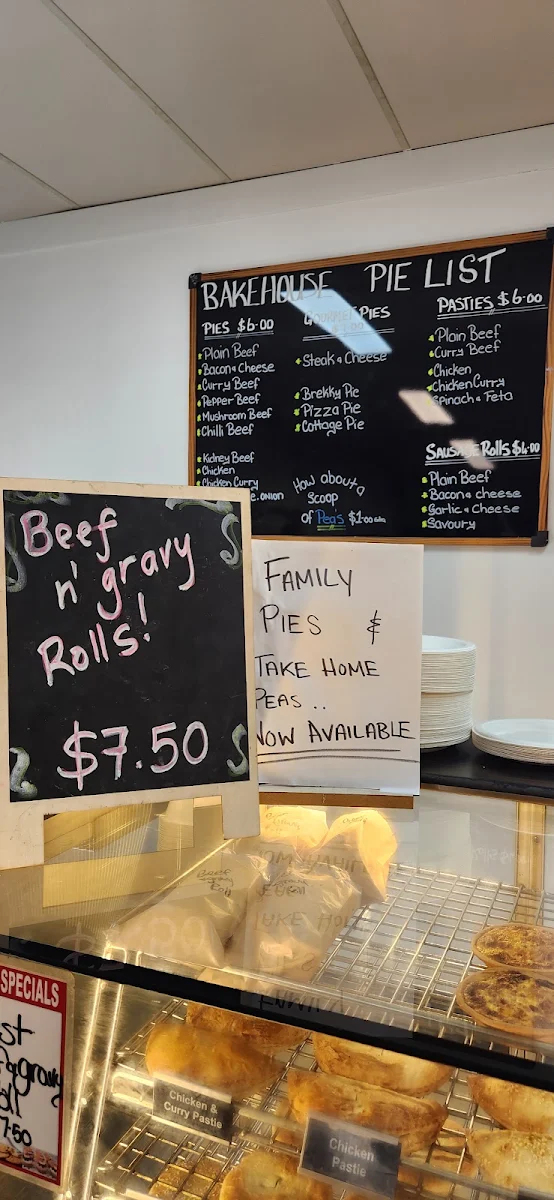 BAKEHOUSE PIE LIST
PIES $6.00
Plain Beef
Bacon & Cheese
Curry Beef
Pepper Beef
Mushroom Beef
Chilli Beef
Kidney Beef
Chicken
Chicken Curry
onion
GOURMET PIES
Steak & Cheese
Brekky Pie
Pizza Pie
Cottage Pie
How about a
Scoop
of Pea's $1.00
PASTIES $6.00
Plain Beef
Curry Beef
Chicken
Chicken Curry
Spinach & Feta
SAUSAGE ROLLS $4.00
Plain Beef
Bacon & cheese
Garlic & Cheese
Savoury
Beef
n' gravy
Rolls!
$7.50
FAMILY
PIES &
TAKE HOME
PEAS ..
NOW AVAILABLE
SPECIALS
gravy
7.50
Chicken &
Curry Pastie
Chicken
Pastie